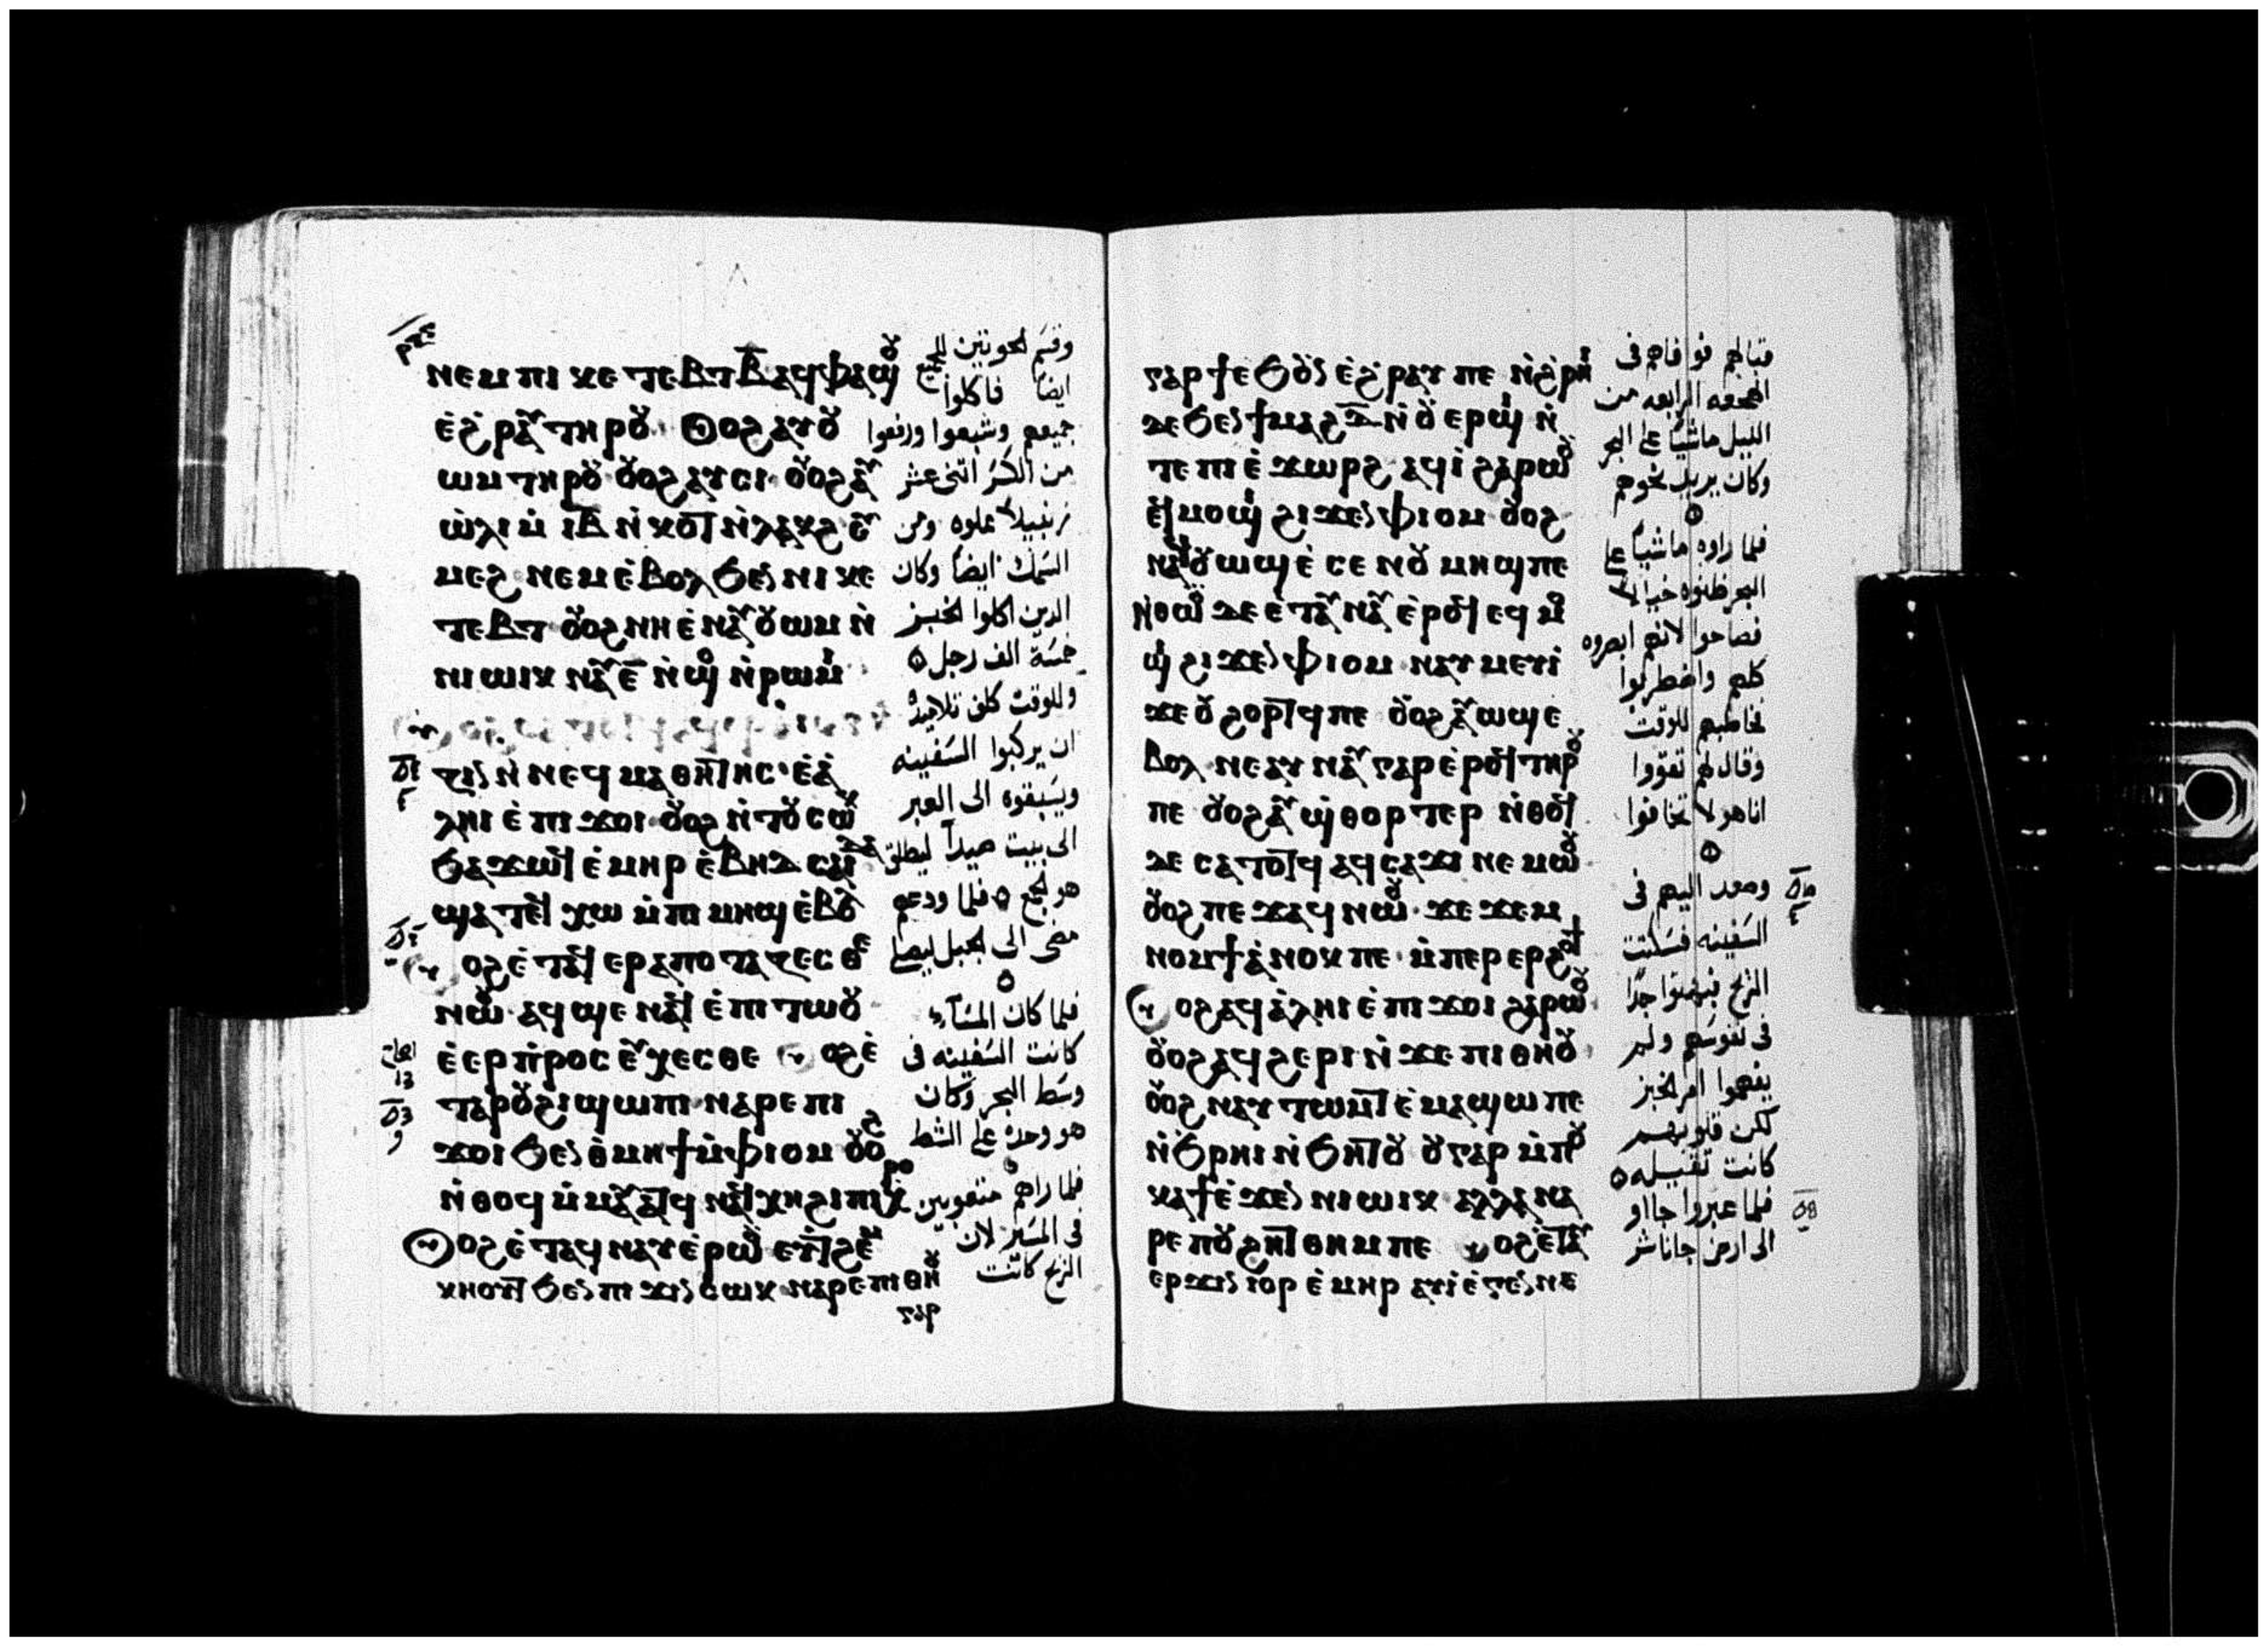 ⲛⲉⲙ ⲡⲓ ⲕⲉ ⲧⲉⲃⲧ ⲃ̅ ⲁϥⲫⲁϣⲟⲩ
ⲉ̀ϩⲣⲁⲩ ⲧⲏⲣⲟⲩ ⲟⲩⲟϩ ⲁⲩⲟⲩ
ⲱⲙ ⲧⲏⲣⲟⲩ ⲟⲩⲟϩ ⲁⲩⲥⲓ ⲟⲩⲟϩ ⲁⲩ
ⲱ̀ⲗⲓ ⲙ̀ ⲓⲃ̅ ⲛ̀ ⲕⲟⲧ ⲛ̀ⲗⲁⲕϩ ⲉⲩ
ⲙⲉϩ ⲛⲉⲙ ⲉ̀ⲃⲟⲗ ϧⲉⲛ ⲛⲓ ⲕⲉ
ⲧⲉⲃⲧ ⲟⲩⲟϩ ⲛⲏ ⲉ̀ⲛⲁⲩⲟⲩⲱⲙ ⲛ̀
ⲛⲓ ⲱⲓⲕ ⲛⲁⲩ ⲉ̅ ⲛ̀ϣⲟ ⲛ̀ⲣⲱⲙⲓ
ⲛ ⲛⲉϥ ⲙⲁⲑⲏⲧⲏⲥ ⲉ̀ⲁ̀
ⲗⲏⲓ ⲉ̀ ⲡⲓ ϫⲟⲓ ⲟⲩⲟϩ ⲛ̀ⲧⲟⲩⲥⲱⲕ
ϧⲁϫⲱϥ ⲉ̀ ⲙⲏⲣ ⲉ̀ ⲃⲏⲇⲥⲁⲓⲇⲁ
ϣⲁⲧⲉϥ ⲭⲱ ⲙ̀ ⲡⲓ ⲙⲏϣ ⲉ̀ⲃⲟⲗ
ⲟⲩⲟϩ ⲉ̀ⲧⲁϥ ⲉⲣⲁⲡⲟⲧⲁⲍⲉⲥⲑⲉ
ⲛⲱⲟⲩ ⲁϥ ϣⲉ ⲛⲁϥ ⲉ̀ ⲡⲓ ⲧⲱⲟⲩ
ⲉ̀ⲉⲣ ⲡⲣⲟⲥⲉⲩⲭⲉⲥⲑⲉ ⲟⲩⲟϩ ⲉ̀
ⲧⲁⲣⲟⲩϩⲓ ϣⲱⲡⲓ ⲛⲁⲣⲉ ⲡⲓ
ϫⲟⲓ ϧⲉⲛ ⲑⲙⲏϯ ⲙ̀ⲫⲓⲟⲙ ⲟⲩⲟϩ
ⲛ̀ⲑⲟϥ ⲙ̀ⲙⲁⲩⲁⲧϥ ⲛⲁϥⲭⲏ ϩⲓ ⲡⲓⲭⲣⲟ
ⲟⲩⲟϩ ⲉ̀ⲧⲁϥ ⲛⲁⲩ ⲉ̀ⲣⲱⲟⲩ ⲉⲩⲧϩⲉⲙ
ⲕⲏⲟⲩⲧ ϧⲉⲛ ⲡⲓ ϫⲓⲛⲥⲱⲕ ⲛⲁⲣⲉ ⲡⲓⲑⲏⲟⲩ
ⲅⲁⲣ
وقسم الحوتين للجميع
ايضا فاكلوا
جميعهم وشبعوا ورفعوا
من الكسر اثنى عشر
زنبيلا مملوه ومن
السمك ايضا وكان
الذين اكلوا الخبز
خمسة الف رجل
وللوقت كلف تلاميذه
ان يركبوا السفينه
ويسبقوه الى العبر
الى بيت صيدا ليطلق
هو الجمع فلما ودعهم
مضى الى الجبل ليصلى
فلما كان المساء
كانت السفينه فى
وسط البحر وكان
هو وحده على الشط
فلما راهم متعوبين
فى المسير لان
الريح كانت
ⲅⲁⲣ ϯ ⲉϧⲟⲩⲛ ⲉ̀ϩⲣⲁⲩ ⲡⲉ ⲛ̀ϩⲣⲏⲓ
ⲇⲉ ϧⲉⲛ ϯⲙⲁϩ ⲇ̅ ⲛ̀ⲟⲩⲉⲣϣⲓ ⲛ̀
ⲧⲉ ⲡⲓ ⲉ̀ϫⲱⲣϩ ⲁϥⲓ̀ ϩⲁⲣⲱⲟⲩ
ⲉϥⲙⲟϣⲓ ϩⲓϫⲉⲛ ⲫⲓⲟⲙ ⲟⲩⲟϩ
ⲛⲁϥⲟⲩⲱϣ ⲉ̀ ⲥⲉⲛⲟⲩ ⲙⲏϣ ⲡⲉ
ⲛ̀ⲑⲱⲟⲩ ⲇⲉ ⲉⲧⲁⲩ ⲛⲁⲩ ⲉ̀ⲣⲟϥ ⲉϥ ⲙⲟ
ϣⲓ ϩⲓϫⲉⲛ ⲫⲓⲟⲙ ⲛⲁⲩ ⲙⲉⲩⲓ̀
ϫⲉ ⲟⲩ ϩⲟⲣⲧϥ ⲡⲉ ⲟⲩⲟϩ ⲁⲩⲱϣ ⲉ̀
ⲃⲟⲗ ⲛⲉ ⲁⲩ ⲛⲁⲩ ⲅⲁⲣ ⲉ̀ⲣⲟϥ ⲧⲏⲣⲟⲩ
ⲡⲉ ⲟⲩⲟϩ ⲁⲩϣⲑⲟⲣⲧⲉⲣ ⲛ̀ⲑⲟϥ
ⲇⲉ ⲥⲁⲧⲟⲧϥ ⲁϥⲥⲁϫⲓ ⲛⲉⲙⲱⲟⲩ
ⲟⲩⲟϩ ⲡⲉϫⲁϥ ⲛⲱⲟⲩ ϫⲉ ϫⲉⲙ
ⲛⲟⲙϯ ⲁ̀ⲛⲟⲕ ⲡⲉ ⲙ̀ⲡⲉⲣ ⲉⲣϩⲟϯ
ⲟⲩⲟϩ ⲁϥⲁ̀ⲗⲏⲓ ⲉ̀ ⲡⲓ ϫⲟⲓ ϩⲁⲣⲱⲟⲩ
ⲟⲩⲟϩ ⲁϥϩⲉⲣⲓ ⲛ̀ϫⲉ ⲡⲓⲑⲏⲟⲩ
ⲟⲩⲟϩ ⲛⲁⲩ ⲧⲱⲙⲧ ⲉ̀ⲙⲁϣⲱ ⲡⲉ
ⲛ̀ϧⲣⲏⲓ ⲛ̀ϧⲏⲧⲟⲩ ⲟⲩ ⲅⲁⲣ ⲙ̀ⲡⲟⲩ
ⲕⲁϯ ⲉ̀ϫⲉⲛ ⲛⲓ ⲱⲓⲕ ⲁⲗⲗⲁ ⲛⲁ
ⲣⲉ ⲡⲟⲩϩⲏⲧ ⲑⲏⲙ ⲡⲉ ⲟⲩⲟϩ ⲉ̀ⲧⲁⲩ
ⲉⲣϫⲓⲛⲓⲟⲣ ⲉ̀ ⲙⲏⲣ ⲁⲩⲓ̀ ⲉ̀ ⲅⲉⲛⲛⲉ
قبالهم فوافاهم فى
الهجعه الرابعه من
الليل ماشيا على البحر
وكان يريد يجوزهم
فلما راوه ماشيا على
البحر ظنوه خيالا
فصاحوا لانهم ابصروه
كلهم واضطربوا
فخاطبهم للوقت
وقال لهم تقووا
انا هو لا تخافوا
وصعد اليهم فى
السفينه فسكنت
الريح فبهتوا جدا
فى نفوسهم ولم
يفهموا امر الخبز
لكن قلوبهم
كانت ثقيله
فلما عبروا جااو
الى ارض جاناشر